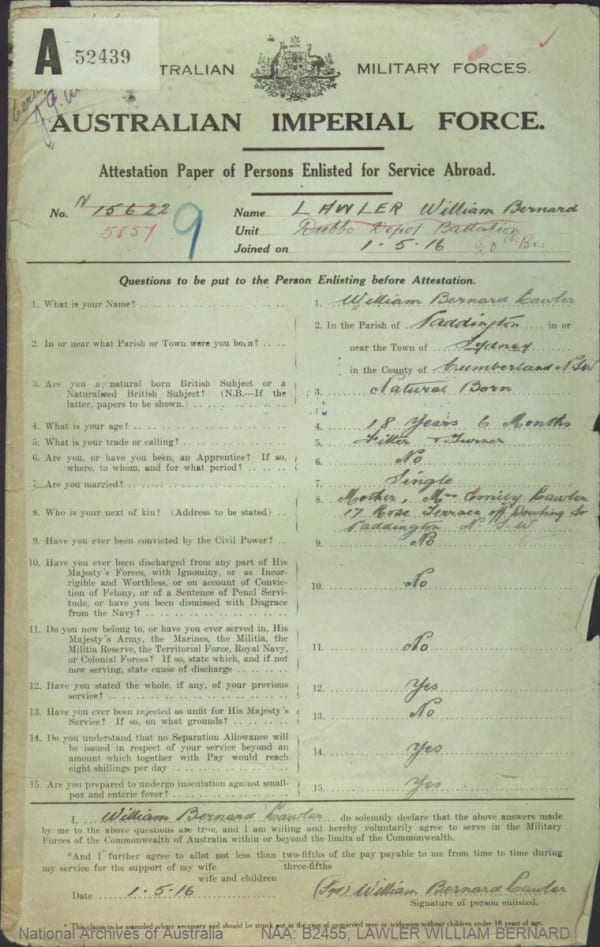 A 52439
TRALIAN MILITARY FORCES.
AUSTRALIAN IMPERIAL FORCE.
Attestation Paper of Persons Enlisted for Service Abroad.
No. N 15622 Name LAWLER William Bernard
5857 9 Unit Dubbo Depot Battalion
Joined on 1.5.16 20
Questions to be put to the Person Enlisting before Attestation.
1. What is your Name? 1. William Bernard Lawler
2. In or near what Parish or Town were you born? 2. In the Parish of Paddington in or
near the Town of Sydney
in the County of Cumberland NSW
3. Are you a natural born British Subject or a
Naturalised British Subject? (N.B.—If the
latter, papers to be shown.) 3. Natural Born
4. What is your age? 4. 18 Years 6 Months
5. What is your trade or calling? 5. Fitter & Turner
6. Are you, or have you been, an Apprentice? If so,
where, to whom, and for what period? 6. No
7. Are you married? 7. Single
8. Who is your next of kin? (Address to be stated) 8. Mother, Mrs Emily Lawler
17 Rose Terrace off Dowling St
Paddington N.S.W
9. Have you ever been convicted by the Civil Power? 9. No
10. Have you ever been discharged from any part of His
Majesty's Forces, with Ignominy, or as Incor-
rigible and Worthless, or on account of Convic-
tion of Felony, or of a Sentence of Penal Servi-
tude, or have you been dismissed with Disgrace
from the Navy? 10. No
11. Do you now belong to, or have you ever served in, His
Majesty's Army, the Marines, the Militia, the
Militia Reserve, the Territorial Force, Royal Navy,
or Colonial Forces? If so, state which, and if not
now serving, state cause of discharge 11. No
12. Have you stated the whole, if any, of your previous
service? 12. Yes
13. Have you ever been rejected as unfit for His Majesty's
Service? If so, on what grounds? 13. No
14. Do you understand that no Separation Allowance will
be issued in respect of your service beyond an
amount which together with Pay would reach
eight shillings per day 14. Yes
15. Are you prepared to undergo inoculation against small-
pox and enteric fever? 15. Yes
I, William Bernard Lawler do solemnly declare that the above answers made
by me to the above questions are true, and I am willing and hereby voluntarily agree to serve in the Military
Forces of the Commonwealth of Australia within or beyond the limits of the Commonwealth.
*And I further agree to allot not less than two-fifths of the pay payable to me from time to time during
three-fifths
my service for the support of my wife
wife and children
Date 1.5.16 (Sgd) William Bernard Lawler
Signature of person enlisted.
*This clause to be amended where necessary and should be struck out in the case of unmarried men or widowers without children under 18 years of age.
National Archives of Australia NAA: B2455, LAWLER WILLIAM BERNARD